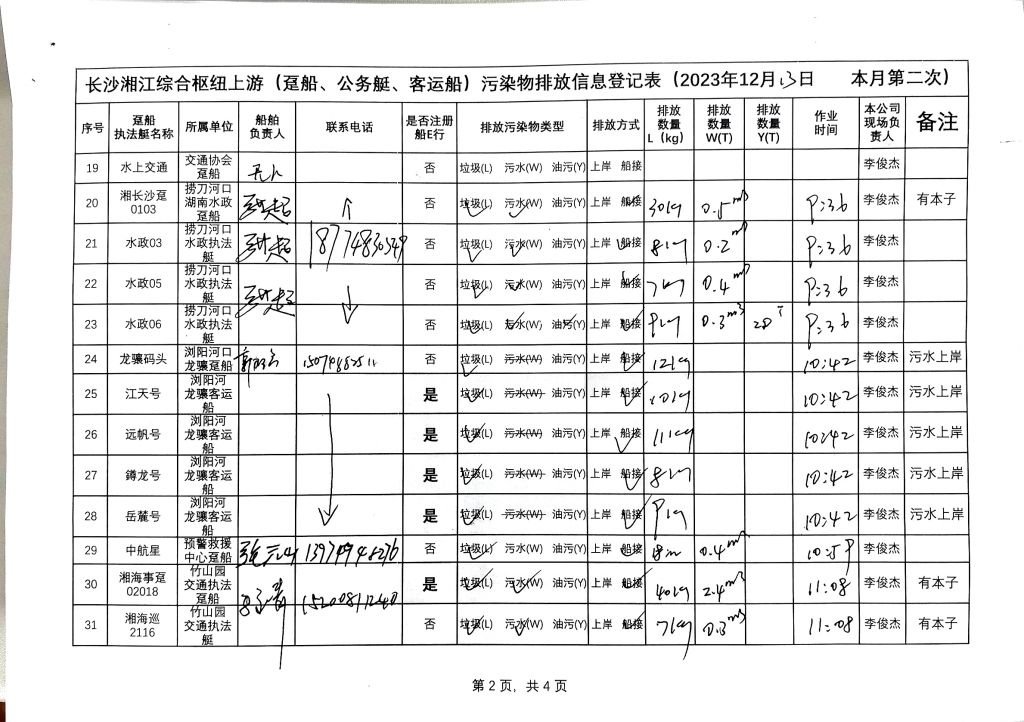 长沙湘江综合枢纽上游（趸船、公务艇、客运船）污染物排放信息登记表（2023年12月13日 本月第二次）
序号 趸船执法艇名称 所属单位 船舶负责人 联系电话 是否注册船E行 排放污染物类型 排放方式 排放数量L（kg） 排放数量W(T) 排放数量Y(T) 作业时间 本公司现场负责人 备注
19 水上交通 交通协会趸船 无人 否 垃圾(L) 污水(W) 油污(Y) 上岸 船接 李俊杰
20 湘长沙趸0103 捞刀河口湖南水政趸船 否 垃圾(L) 污水(W) 油污(Y) 上岸 船接 30kg 0.5m³ 9:36 李俊杰 有本子
21 水政03 捞刀河口水政执法艇 否 垃圾(L) 污水(W) 油污(Y) 上岸 船接 8kg 0.2m³ 9:36 李俊杰
22 水政05 捞刀河口水政执法艇 否 垃圾(L) 污水(W) 油污(Y) 上岸 船接 7kg 0.4m³ 9:36 李俊杰
23 水政06 捞刀河口水政执法艇 否 垃圾(L) 污水(W) 油污(Y) 上岸 船接 9kg 0.3m³ 9:36 李俊杰
24 龙骧码头 浏阳河口龙骧趸船 否 垃圾(L) 污水(W) 油污(Y) 上岸 船接 12kg 10:42 李俊杰 污水上岸
25 江天号 浏阳河龙骧客运船 是 垃圾(L) 污水(W) 油污(Y) 上岸 船接 10kg 10:42 李俊杰 污水上岸
26 远帆号 浏阳河龙骧客运船 是 垃圾(L) 污水(W) 油污(Y) 上岸 船接 11kg 10:42 李俊杰 污水上岸
27 鳟龙号 浏阳河龙骧客运船 是 垃圾(L) 污水(W) 油污(Y) 上岸 船接 8kg 10:42 李俊杰 污水上岸
28 岳麓号 浏阳河龙骧客运船 是 垃圾(L) 污水(W) 油污(Y) 上岸 船接 9kg 10:42 李俊杰 污水上岸
29 中航星 预警救援中心趸船 13974948276 否 垃圾(L) 污水(W) 油污(Y) 上岸 船接 0.4m³ 10:59 李俊杰
30 湘海事趸02018 竹山园交通执法趸船 15200811240 是 垃圾(L) 污水(W) 油污(Y) 上岸 船接 40kg 2.4m³ 11:08 李俊杰 有本子
31 湘海巡2116 竹山园交通执法艇 否 垃圾(L) 污水(W) 油污(Y) 上岸 船接 7kg 0.3m³ 11:08 李俊杰 有本子
第 2 页，共 4 页